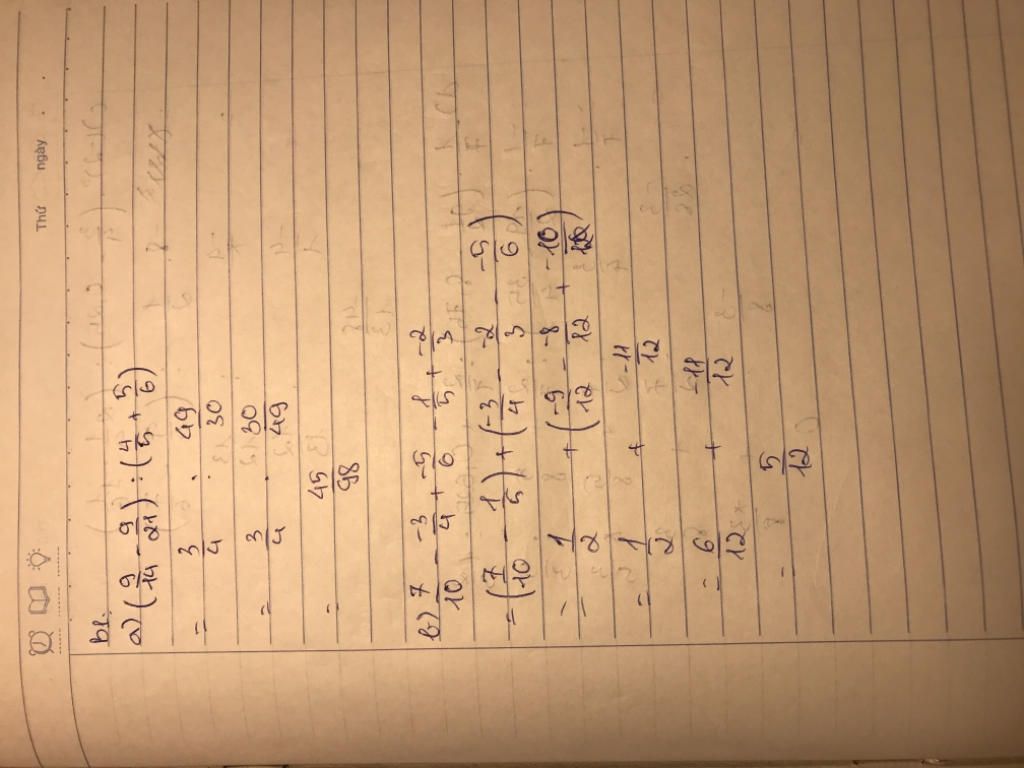 Thứ ngày
B1.
a) (9/14 - 9/21) : (4/5 + 5/6)
= 3/4 : 49/30
= 3/4 . 30/49
= 45/98
b) 7/10 - -3/4 + -5/6 - 1/5 + -2/3
= (7/10 - 1/5) + (-3/4 - -2/3 - -5/6)
= 1/2 + (-9/12 - -8/12 + -10/12)
= 1/2 + -11/12
= 6/12 + -11/12
= 5/12